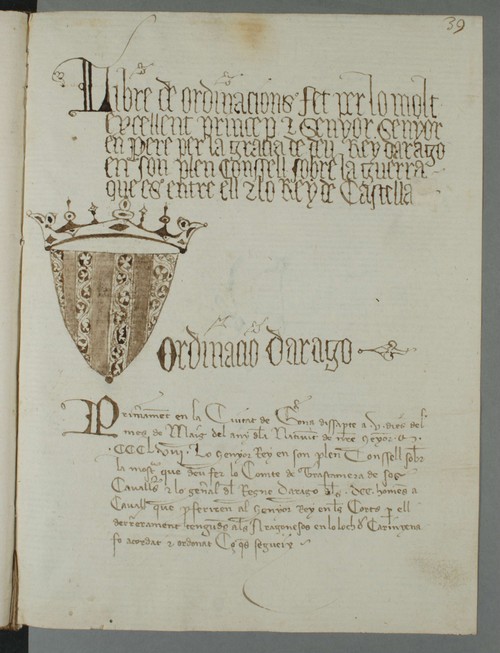 39
Libre de ordinacions fet per lo molt
excellent princep ⁊ Senyor Senyor
en pere per la gracia de deu Rey darago
en son plen Consell sobre la guerra
que es entre ell ⁊ lo Rey de Castella
Ordinacio darago
Primament en la Ciutat de dissapte a dies del
mes de Maig del any dla Nativit de nre Senyor
CCCLVIII. Lo Senyor Rey en son plen Consell sobr
la que deu fer lo Comte de Trastamera de
Cavalls ⁊ lo gñral dl Regne darago dls DCC. homens a
Cavall que pferiren al Senyor Rey en les Corts p ell
derrerament tengudes als Aragoneses en lo loch d Carinyena
fo acordat ⁊ ordenat Ço qs segueix